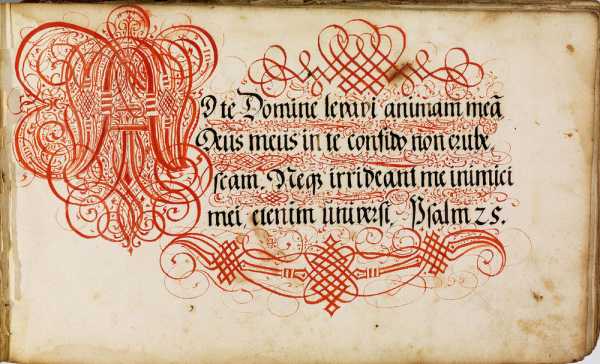 AD te Domine levavi animam meã
Deus meus in te confido non erube,
scam. Neqꝫ irrideant me inimici
mei, etenim universi. Psalm 25.